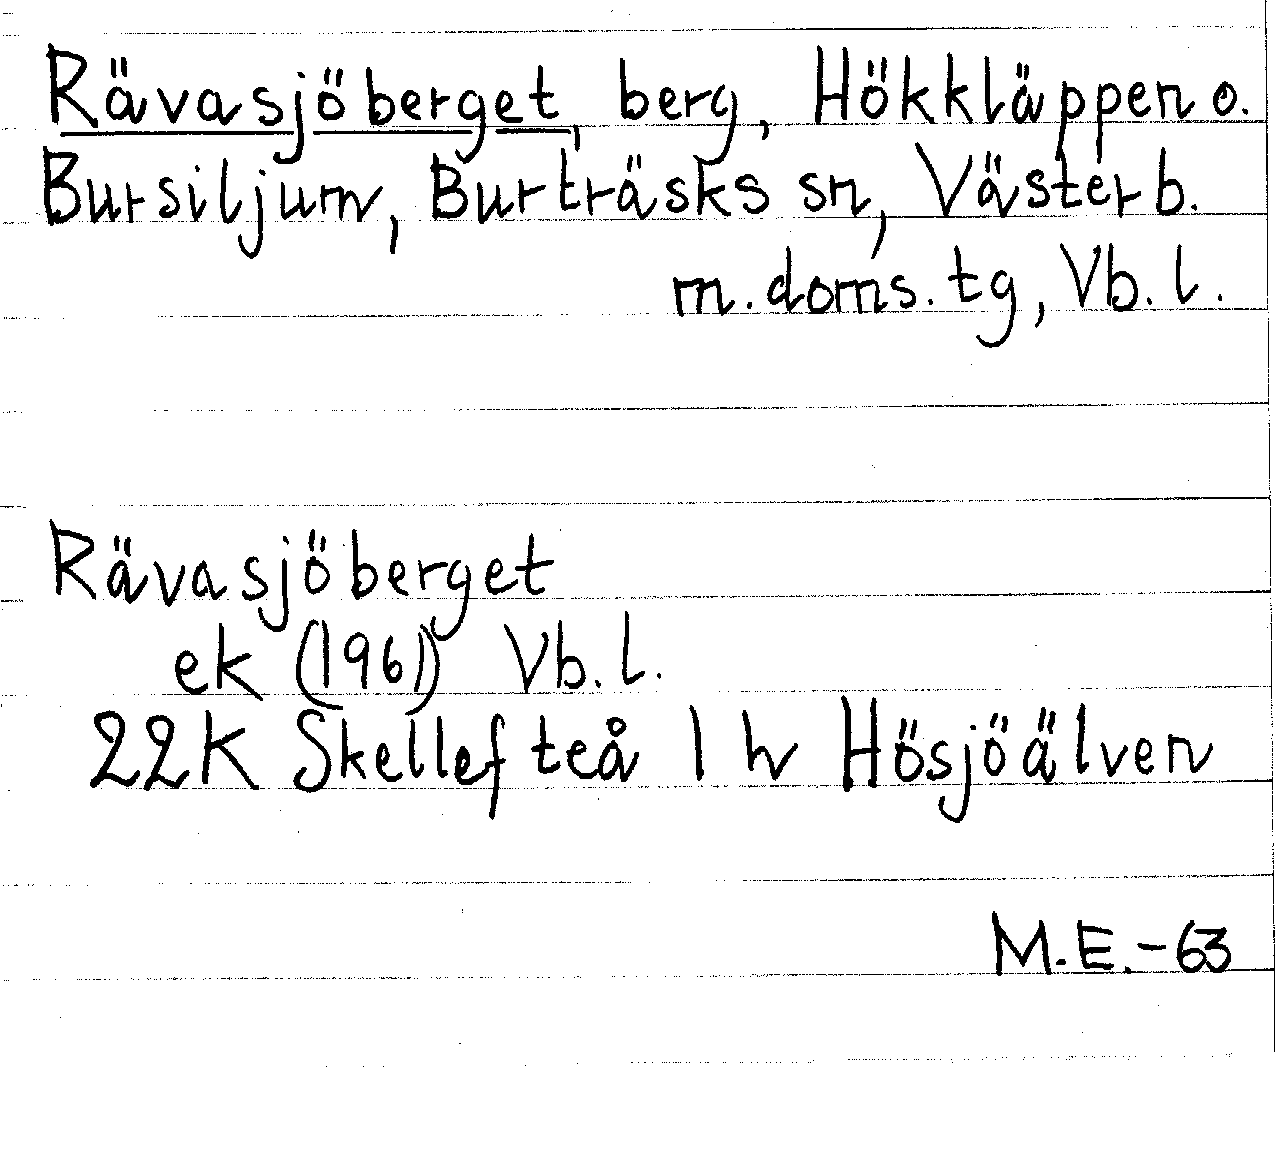 Rävasjöberget, berg, Hökkläppen o.
Bursiljum, Burträsks sn, Västerb.
m. doms. tg, Vb. l.
Rävasjöberget
ek (1961) Vb. l.
22K Skellefteå 1 h Hösjöälven
M.E.-63